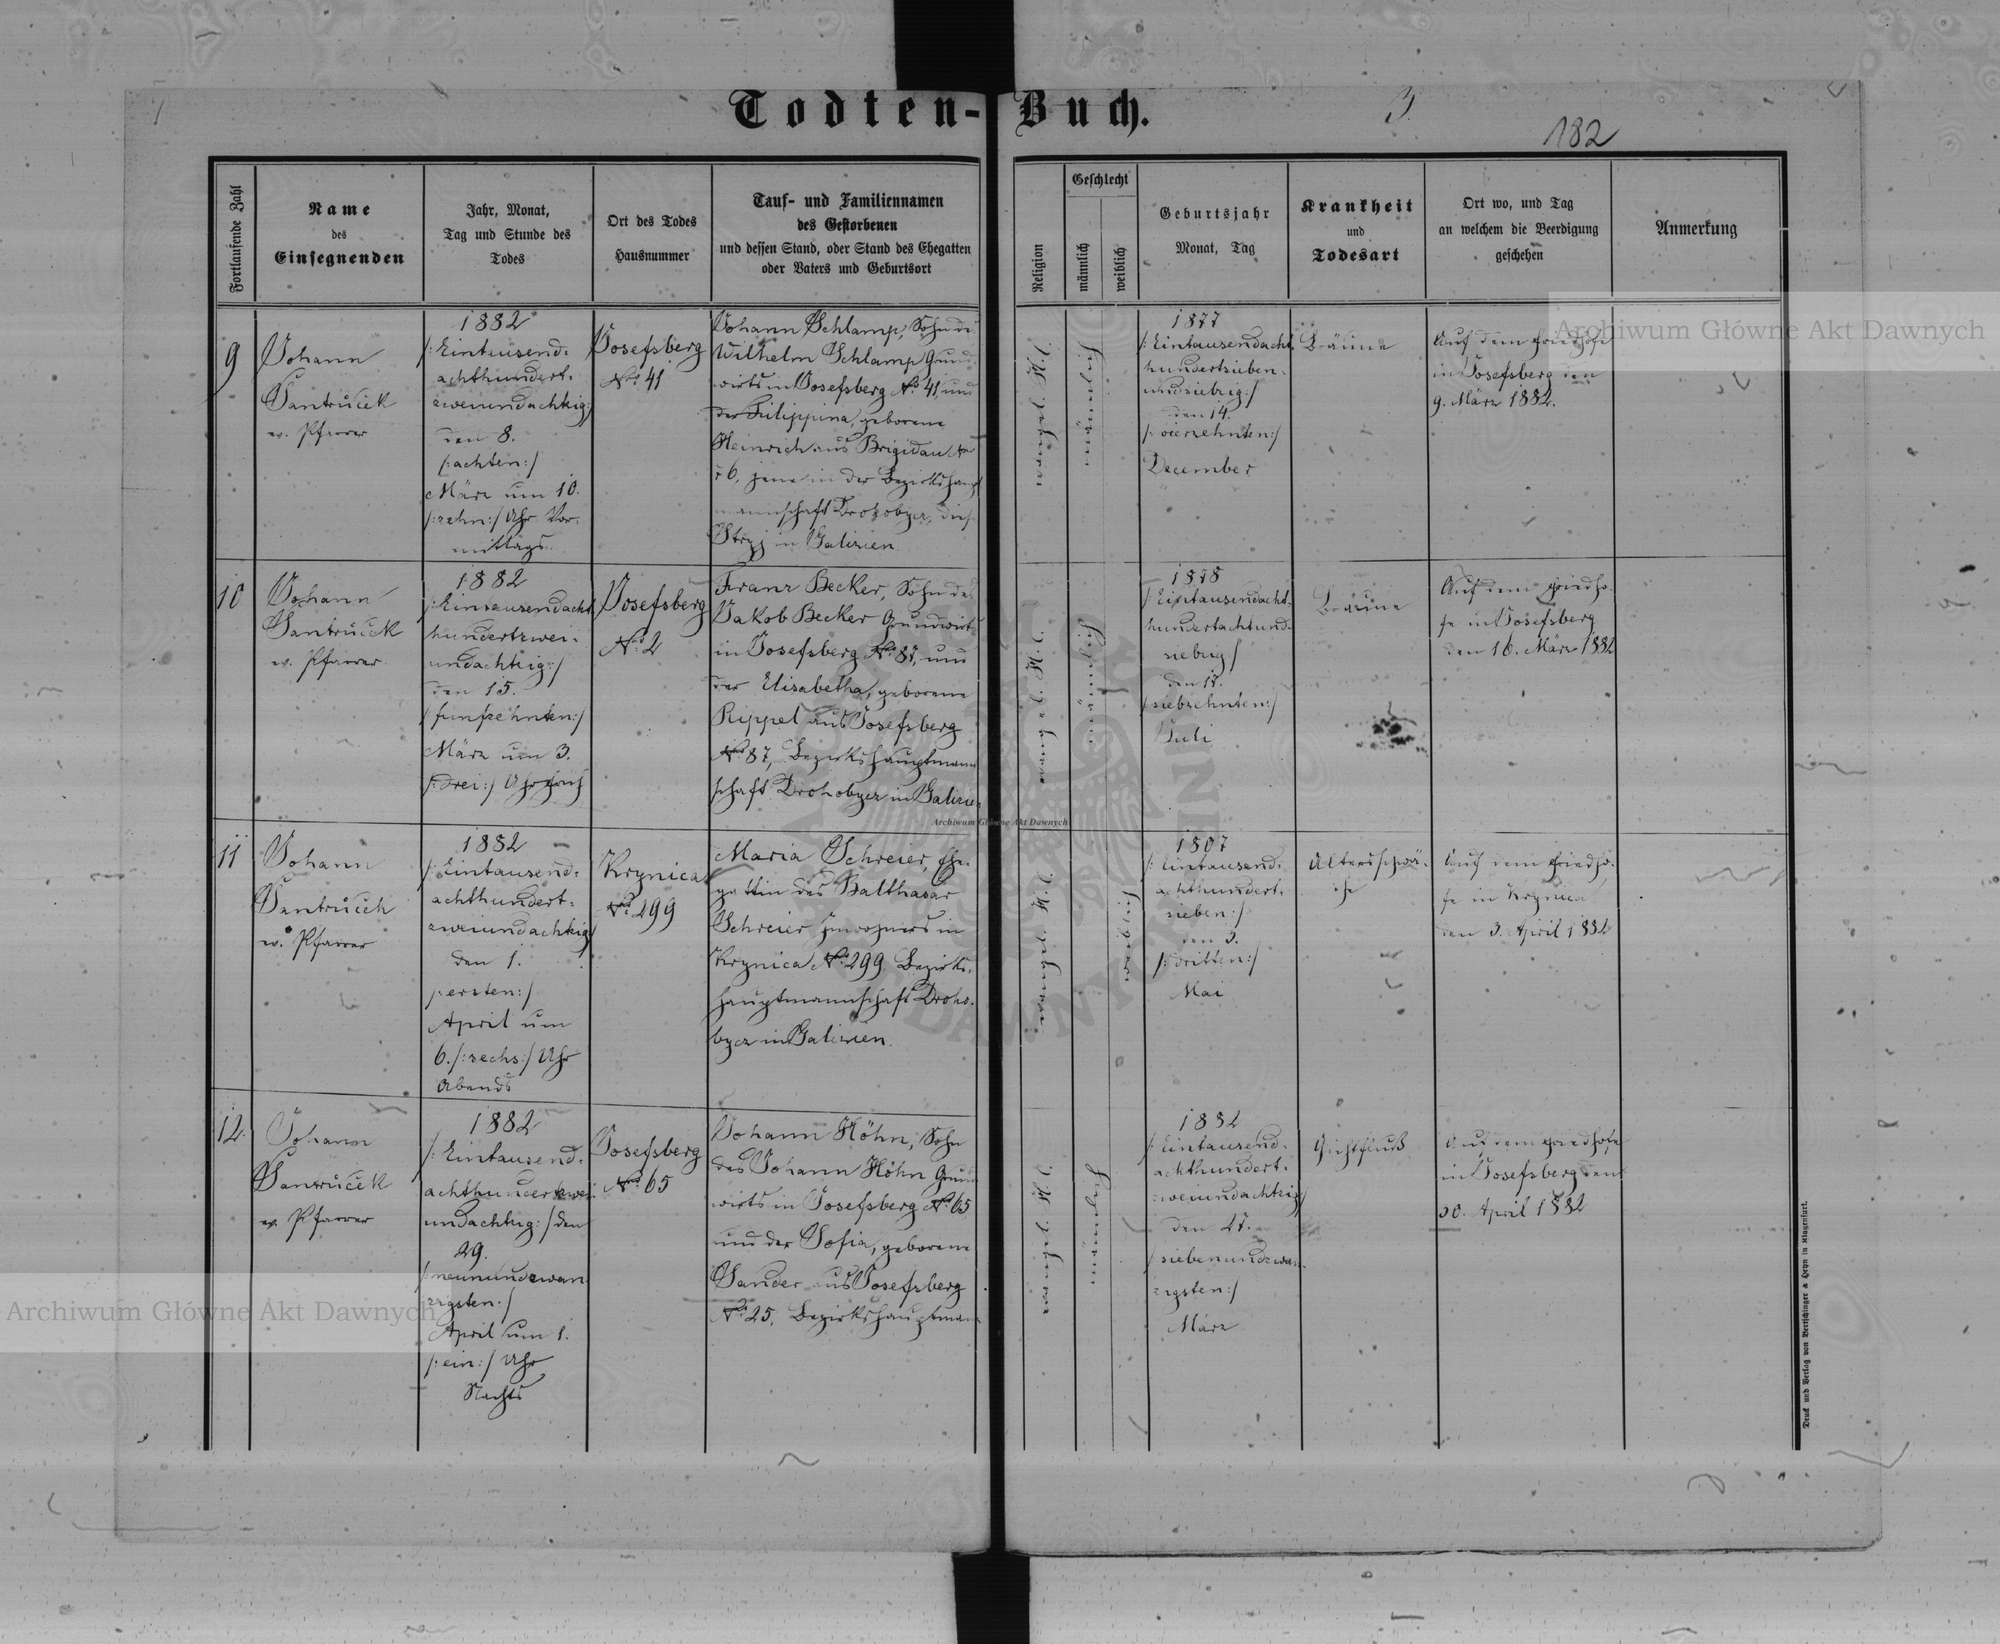 Todten-Buch.
182
Fortlaufende Zahl
Name
des
Einsegnenden
Jahr, Monat,
Tag und Stunde des
Todes
Ort des Todes
Hausnummer
Tauf- und Familiennamen
des Gestorbenen
und dessen Stand, oder Stand des Ehegatten
oder Vaters und Geburtsort
Religion
Geschlecht
männlich
weiblich
Geburtsjahr
Monat, Tag
Krankheit
und
Todesart
Ort wo, und Tag
an welchem die Beerdigung
geschehen
Anmerkung
9
Johann
Santruček
ev. Pfarrer
1882
/: Eintausend-
achthundert-
zweiundachtzig :/
den 8.
/: achten :/
März um 10.
/: zehn :/ Uhr Vor-
mittags.
Josefsberg
Nro 41
Johann Schlamp, Sohn des
Wilhelm Schlamp Grund-
wirts in Josefsberg No. 41, und
der Filippina, geborene
Heinrich aus Brigidau Nro
jene in der Bezirkshaupt
mannschaft Drohobycz, dies.
Stryj in Galizien.
1877
/: Eintausendacht-
hundertsieben-
undsiebzig :/
den 14.
/: vierzehnten :/
December
Bräune
Auf dem Friedhofe
in Josefsberg den
9. März 1882.
10
Johann
Santruček
ev. Pfarrer
1882
/: Eintausendacht-
hundertzwei-
undachtzig :/
den 15.
/: fünfzehnten :/
März um 3.
/: drei :/ Uhr früh
Josefsberg
No. 2
Franz Becker, Sohn des
Jakob Becker Grundwirts
in Josefsberg No. 87, und
der Elisabetha, geborene
Rippel aus Josefsberg
Nro 87, Bezirkshauptmann
schaft Drohobycz in Galizien
1878
/: Eintausendacht-
hundertachtund-
siebzig :/
den 17.
/: siebzehnten :/
Juli
Bräune
Auf dem Friedho-
fe in Josefsberg
den 16. März 1882
11
Johann
Santruček
ev. Pfarrer
1882
/: Eintausend-
achthundert-
zweiundachtzig :/
den 1.
/: ersten :/
April um
6. /: sechs :/ Uhr
Abends
Krynica
Nro 299
Maria Schreier, Ehe-
gattin des Balthasar
Schreier Einwohners in
Krynica No. 299. Bezirks-
hauptmannschaft Droho-
bycz in Galizien.
1807
/: Eintausend-
achthundert-
sieben :/
den 3.
/: dritten :/
Mai
Altersschwä-
che
Auf dem Friedho-
fe in Krynica
den 3. April 1882
12.
Johann
Santruček
ev. Pfarrer
1882
/: Eintausend-
achthundertzwei-
undachtzig :/ den
29.
/: neunundzwan-
zigsten :/
April um 1.
/: ein :/ Uhr
Nachts
Josefsberg
Nro 65
Johann Höhn, Sohn
des Johann Höhn Grund
wirts in Josefsberg No. 65
und der Sofia, geborene
Sander aus Josefsberg
No. 25, Bezirkshauptman
1882
/: Eintausend-
achthundert-
zweiundachtzig
den 27.
/: siebenundzwan-
zigsten :/
März
Auf dem Friedhofe
in Josefsberg den
30. April 1882
Druck und Verlag von Bertschinger & Heyn in Klagenfurt.
Archiwum Główne Akt Dawnych
Archiwum Główne Akt Dawnych
Archiwum Główne Akt Dawnych